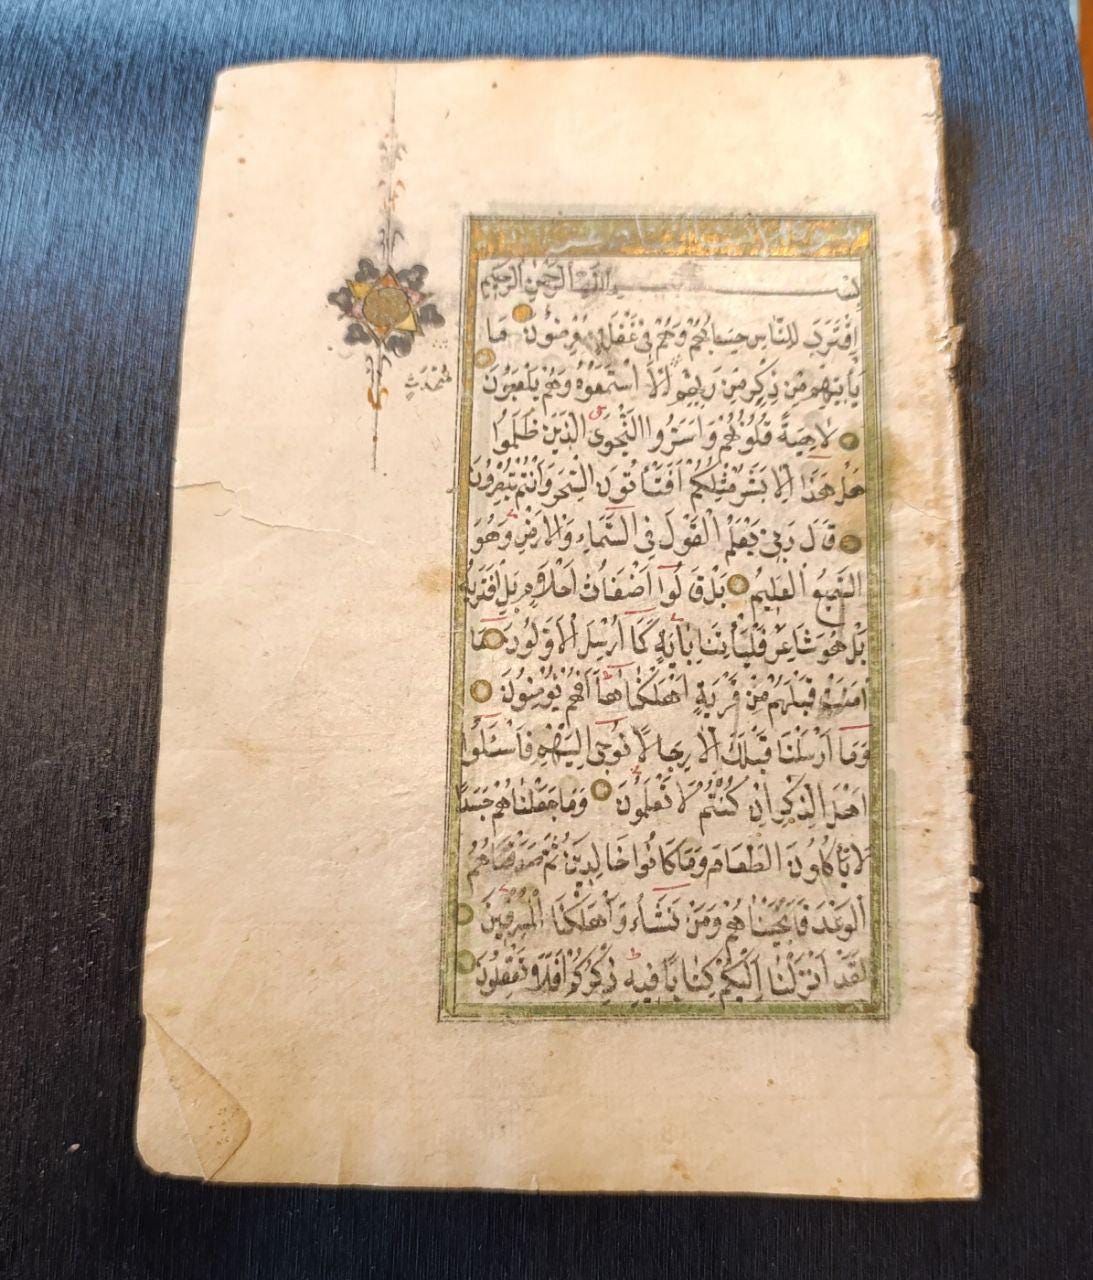 بِسْمِ اللّٰهِ الرَّحْمٰنِ الرَّحِيمِ
اِقْتَرَبَ لِلنَّاسِ حِسَابُهُمْ وَهُمْ فِى غَفْلَةٍ مُعْرِضُونَ مَا
يَأْتِيهِمْ مِنْ ذِكْرٍ مِنْ رَبِّهِمْ اِلَّا اسْتَمَعُوهُ وَهُمْ يَلْعَبُونَ
مُحْدَثٍ
لَاهِيَةً قُلُوبُهُمْ وَاَسَرُّوا النَّجْوَى الَّذِينَ ظَلَمُوا
هَلْ هٰذَا اِلَّا بَشَرٌ مِثْلُكُمْ اَفَتَأْتُونَ السِّحْرَ وَاَنْتُمْ تُبْصِرُونَ
قَالَ رَبِّى يَعْلَمُ الْقَوْلَ فِى السَّمَاءِ وَالْاَرْضِ وَهُوَ
السَّمِيعُ الْعَلِيمُ بَلْ قَالُوا اَضْغَاثُ اَحْلَامٍ بَلِ افْتَرٰيهُ
بَلْ هُوَ شَاعِرٌ فَلْيَأْتِنَا بِاٰيَةٍ كَمَا اُرْسِلَ الْاَوَّلُونَ مَا
اٰمَنَتْ قَبْلَهُمْ مِنْ قَرْيَةٍ اَهْلَكْنَاهَا اَفَهُمْ يُؤْمِنُونَ
وَمَا اَرْسَلْنَا قَبْلَكَ اِلَّا رِجَالًا نُوحِى اِلَيْهِمْ فَاسْئَلُوا
اَهْلَ الذِّكْرِ اِنْ كُنْتُمْ لَا تَعْلَمُونَ وَمَا جَعَلْنَاهُمْ جَسَدًا
لَا يَأْكُلُونَ الطَّعَامَ وَمَا كَانُوا خَالِدِينَ ثُمَّ صَدَقْنَاهُمُ
الْوَعْدَ فَاَنْجَيْنَاهُمْ وَمَنْ نَشَاءُ وَاَهْلَكْنَا الْمُسْرِفِينَ
لَقَدْ اَنْزَلْنَا اِلَيْكُمْ كِتَابًا فِيهِ ذِكْرُكُمْ اَفَلَا تَعْقِلُونَ